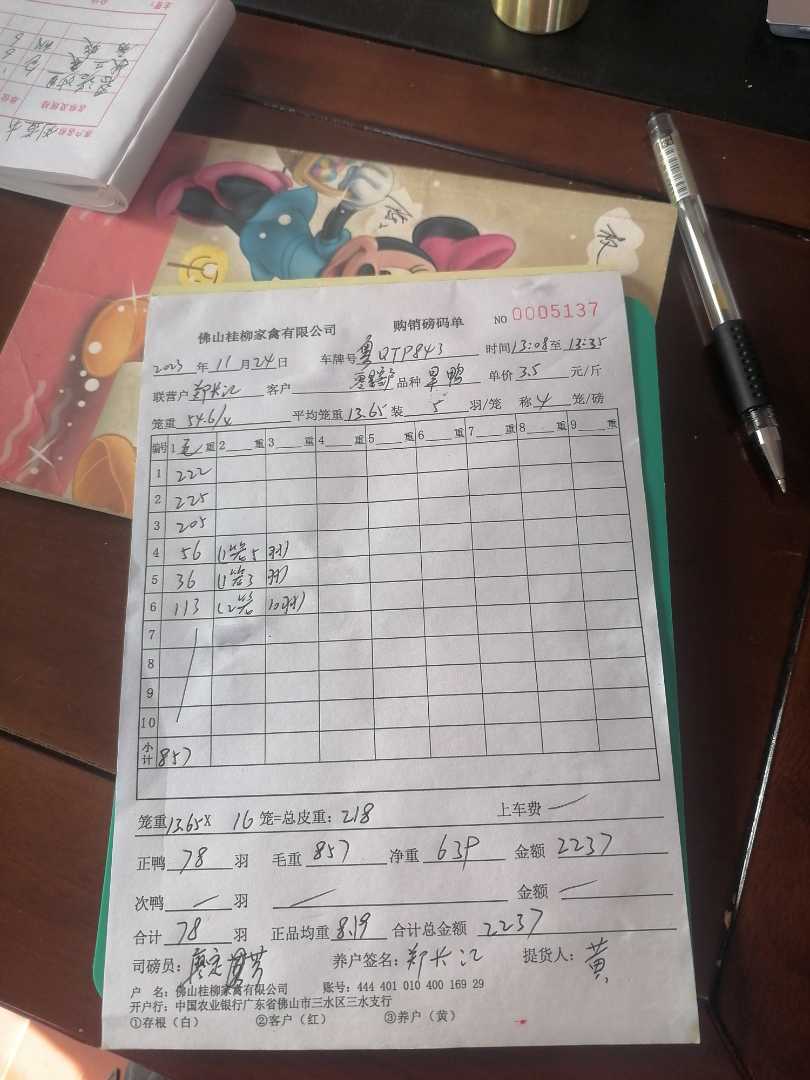 客户名称
名称及规格
佛山桂柳家禽有限公司 购销磅码单 NO 0005137
2023 年 11 月 24 日 车牌号 粤QTP843 时间 13:08 至 13:35
联营户 郑长江 客户 品种 旱鸭 单价 3.5 元/斤
笼重 54.6/4 平均笼重 13.65 装 5 羽/笼 称 4 笼/磅
编号 1 毛 重 2 重 3 重 4 重 5 重 6 重 7 重 8 重 9 重
1 222
2 225
3 205
4 56 (1笼5羽)
5 36 (1笼3羽)
6 113 (2笼10羽)
7
8
9
10
小计 857
笼重 13.65 X 16 笼=总皮重: 218 上车费 —
正鸭 78 羽 毛重 857 净重 639 金额 2237
次鸭 — 羽 — 金额 —
合计 78 羽 正品均重 8.19 合计总金额 2237
司磅员: 养户签名: 郑长江 提货人: 黄
户 名: 佛山桂柳家禽有限公司 账号: 444 401 010 400 169 29
开户行: 中国农业银行广东省佛山市三水区三水支行
①存根(白) ②客户(红) ③养户(黄)